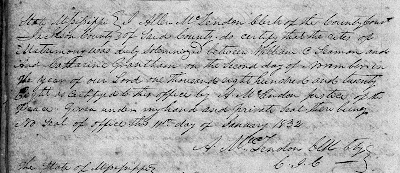 State Mpisippi } I Allen McLendon Clerk of the County Court
Jackson County } of Said County do certify that the rites of
Matrimony was duly Solemnized between William C Seamon and
Catharine Grantham on the Second day of November in
the year of our Lord one thousand eight hundred and twenty
Eight as Certifyed to this office by A McLendon Justice of the
Peace Given under my hand and private Seal there being
No Seal of office the 10th day of January 1832
A McLendon Clk
C. J. C
The State of Mpisippi